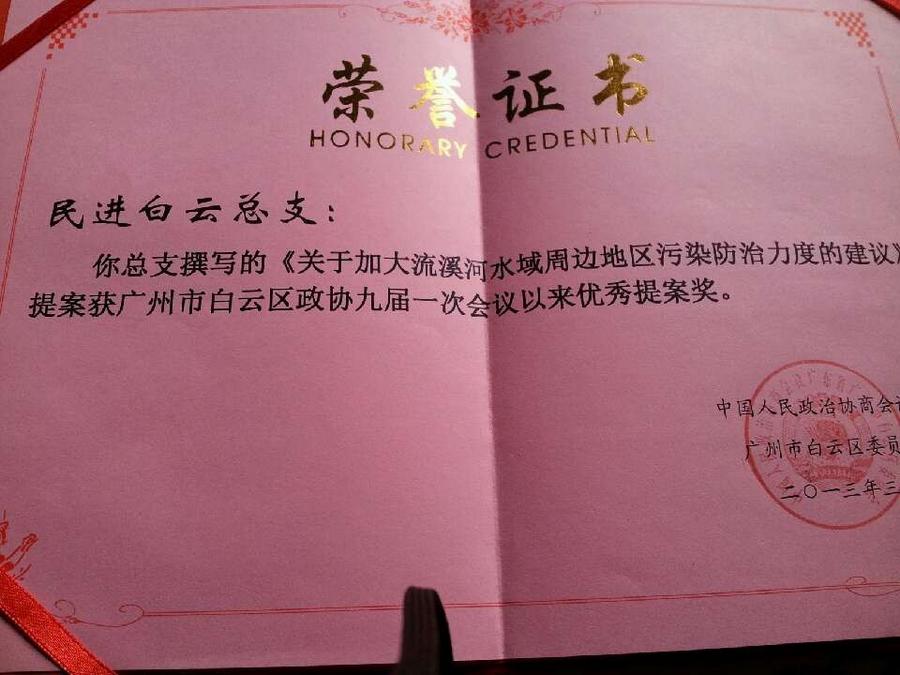 荣誉证书
HONORARY CREDENTIAL
民进白云总支：
你总支撰写的《关于加大流溪河水域周边地区污染防治力度的建议》
提案获广州市白云区政协九届一次会议以来优秀提案奖。
中国人民政治协商会
广州市白云区委员
二〇一三年三